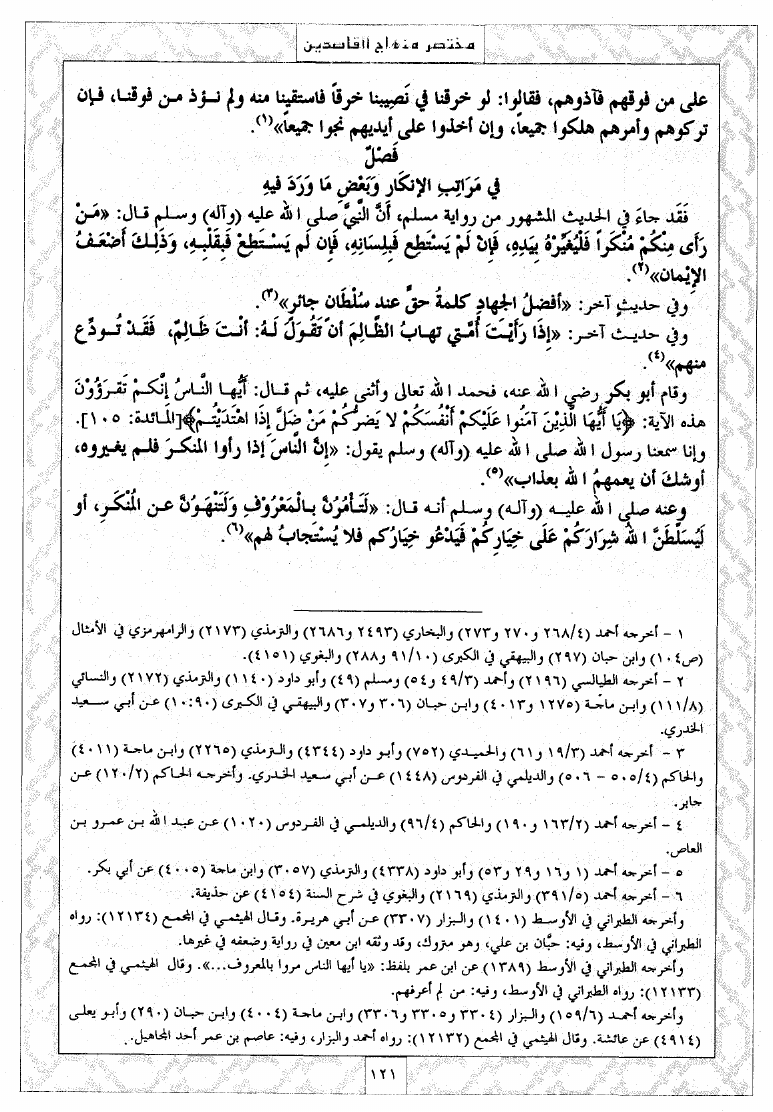 مختصر منهاج القاصدين
على من فوقهم فآذوهم، فقالوا: لو خرقنا في نَصيبنا خرقاً فاستقينا منه ولم نـؤذ مـن فوقنـا، فـإن
تركوهم وأمرهم هلكوا جميعاً، وإن أخذوا على أيديهم نجوا جميعاً»(١).
فَصْلٌ
في مَرَاتِبِ الإنكَارِ وَبَعْضِ مَا وَرَدَ فِيهِ
فَقَد جاءَ في الحديث المشهور من رواية مسلم، أَنَّ النَّبِيَّ صلى الله عليه (وآله) وسلم قال: «مَـنْ
رَأَى مِنْكُمْ مُنْكَراً فَلْيُغَيِّرْهُ بِيَدِهِ، فَإِنْ لَمْ يَسْتَطِعِ فَبِلِسَانِهِ، فَإِن لَم يَسْـتَطِعْ فَبِقَلْبِـهِ، وَذَلِـكَ أَضْعَـفُ
الإيْمان»(٢).
وفي حديثٍ آخر: «أفضلُ الجهادِ كلمةُ حقٍّ عند سُلْطَان جائر»(٣).
وفي حديـث آخـر: «إذَا رَأَيْـتَ أُمَّـتي تهـابُ الظَّـالِمَ أنْ تَقُـوْلَ لَـهُ: أنْـتَ ظَـالِمٌ، فَقَـدْ تُـودِّع
منهم»(٤).
وقام أبو بكر رضي الله عنه، فحمد الله تعالى وأثنى عليه، ثم قـال: أَيُّهـا النَّـاسُ إنَّكـمْ تَقـرَؤُوْنَ
هذه الآية: ﴿يَا أَيُّهَا الَّذِيْنَ آمَنُوا عَلَيْكُم أَنْفُسَكُمْ لا يَضرُّكُمْ مَنْ ضَلَّ إِذَا اهْتَدَيْتُـمْ﴾[المائدة: ١٠٥].
وإنا سمعنا رسول الله صلى الله عليه (وآله) وسلم يقول: «إنَّ النَّاسَ إذا رأوا المنكـرَ فلـم يغيروه،
أوشكَ أن يعمهمُ الله بعذاب»(٥).
وعنه صلى الله عليـه (وآلـه) وسـلم أنـه قـال: «لَتَـأمُرُنَّ بـالْمَعْرُوْفِ وَلَتَنْهَـوُنَّ عـن المُنْكَـرِ، أو
لَيُسَلِّطَنَّ اللهُ شِرَارَكُمْ عَلَى خِيَارِكُمْ فَيَدْعُو خِيَارُكم فلا يُسْتَجابُ لهم»(٦).
١ - أخرجه أحمد (٢٦٨/٤ و٢٧٠ و٢٧٣) والبخاري (٢٤٩٣ و٢٦٨٦) والترمذي (٢١٧٣) والرامهرمزي في الأمثال
(ص١٠٤) وابن حبان (٢٩٧) والبيهقي في الكبرى (٩١/١٠ و٢٨٨) والبغوي (٤١٥١).
٢ - أخرجه الطيالسي (٢١٩٦) وأحمد (٤٩/٣ و٥٤) ومسلم (٤٩) وأبو داود (١١٤٠) والترمذي (٢١٧٢) والنسائي
(١١١/٨) وابن ماجة (١٢٧٥ و٤٠١٣) وابن حبان (٣٠٦ و٣٠٧) والبيهقي في الكبرى (١٠:٩٠) عن أبي سـعيد
الخدري.
٣ - أخرجه أحمد (١٩/٣ و٦١) والحميدي (٧٥٢) وأبـو داود (٤٣٤٤) والـترمذي (٢٢٦٥) وابـن ماجـة (٤٠١١)
والحاكم (٥٠٥/٤ - ٥٠٦) والديلمي في الفردوس (١٤٤٨) عـن أبي سعيد الخدري. وأخرجـه الحـاكم (١٢٠/٢) عـن
جابر.
٤ - أخرجه أحمد (١٦٣/٢ و١٩٠) والحاكم (٩٦/٤) والديلمـي في الفـردوس (١٠٢٠) عن عبـد الله بـن عمـرو بـن
العاص.
٥ - أخرجه أحمد (١ و١٦ و٢٩ و٥٣) وأبو داود (٤٣٣٨) والترمذي (٣٠٥٧) وابن ماجة (٤٠٠٥) عن أبي بكر.
٦ - أخرجه أحمد (٣٩١/٥) والترمذي (٢١٦٩) والبغوي في شرح السنة (٤١٥٤) عن حذيفة.
وأخرجه الطبراني في الأوسط (١٤٠١) والبزار (٣٣٠٧) عن أبي هريرة. وقـال الهيثمـي في المجمع (١٢١٣٤): رواه
الطبراني في الأوسط، وفيه: حبَّان بن علي، وهو متروك، وقد وثقه ابن معين في رواية وضعفه في غيرها.
وأخرجه الطبراني في الأوسط (١٣٨٩) عن ابن عمر بلفظ: «يا أيها الناس مروا بالمعروف...». وقال الهيثمـي في المجمـع
(١٢١٣٣): رواه الطبراني في الأوسط، وفيه: من لم أعرفهم.
وأخرجه أحمـد (١٥٩/٦) والبـزار (٣٣٠٤ و٣٣٠٥ و٣٣٠٦) وابن ماجـة (٤٠٠٤) وابن حبـان (٢٩٠) وأبـو يعلـى
(٤٩١٤) عن عائشة. وقال الهيثمي في المجمع (١٢١٣٢): رواه أحمد والبزار، وفيه: عاصم بن عمر أحد المجاهيل.
١٢١